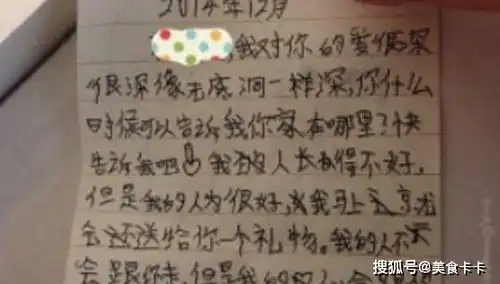 2014年12月
,我对你的爱很深
很深像无底洞一样深,你什么
时候可以告诉我你家在哪里?快
告诉我吧 我这个人长的得不好,
但是我的人为很好,我马上
会还送给你一个礼物。我的人不
会跟你走,但是我的
搜狐号@美食卡卡